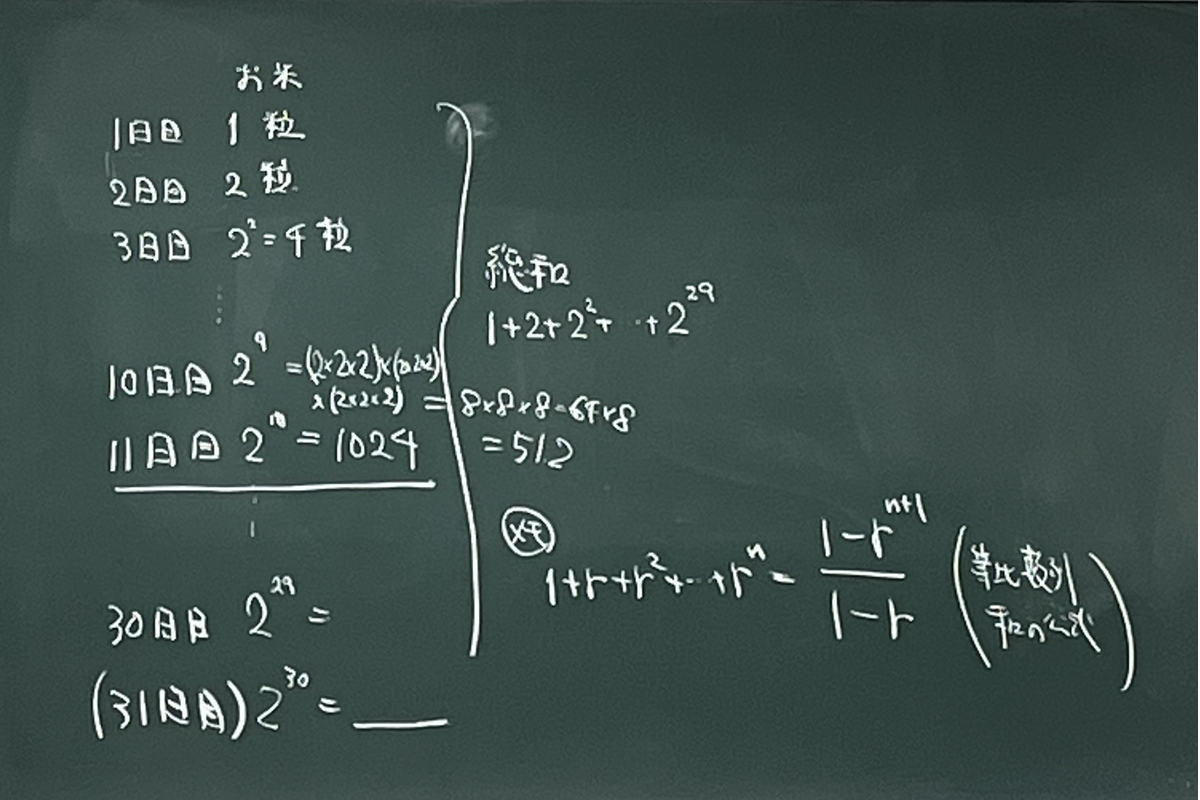 お米
1日目 1粒
2日目 2粒
3日目 2²=4粒
⋮
10日目 2⁹ =(2×2×2)×(2×2×2)
×(2×2×2) = 8×8×8=64×8
=512
11日目 2¹⁰ = 1024
⋮
30日目 2²⁹ =
(31日目) 2³⁰ = ___
総和
1+2+2²+‥+2²⁹
1+r+r²+‥+rⁿ = (1-rⁿ⁺¹)/(1-r) (等比数列
和の公式)